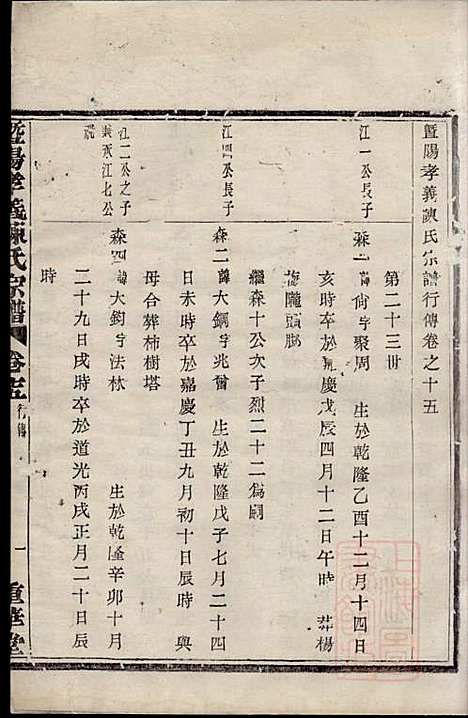 暨陽孝義陳氏宗譜行傳卷之十五
第二十三世
江一公長子
森一諱尙字聚周 生於乾隆乙酉十二月十四日
亥時卒於嘉慶戊辰四月十二日午時 葬楊
梅隴頭脚
繼森十公次子烈二十二爲嗣
江四公長子
森二諱大鋼字兆甾 生於乾隆戊子七月二十四
日未時卒於嘉慶丁丑九月初十日辰時 與
母合葬柿樹塔
江二公之子兼承江七公
森四諱大鈞字法林 生於乾隆辛卯十月
二十九日戌時卒於道光丙戌正月二十日辰
時
暨陽孝義陳氏宗譜 卷十五 行傳 一 重華堂